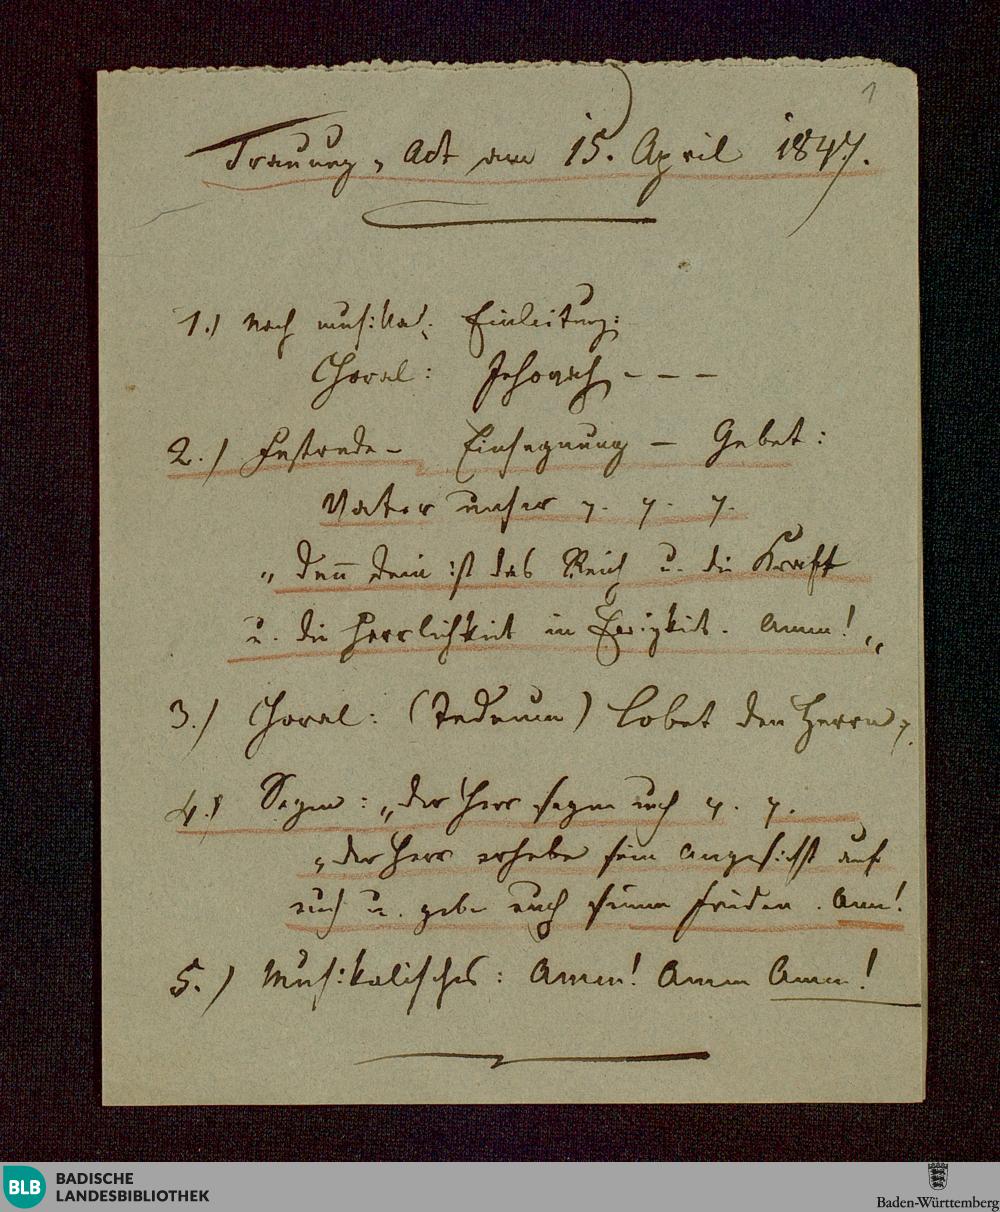 1
Trauung, Act am 15. April 1847.
1.) Nach musikal. Einleitung:
Choral: Jehovah, - - -
2.) Festrede - Einsegnung - Gebet:
Vater unser
„denn dein ist das Reich u. die Kraft
u. die Herrlichkeit in Ewigkeit. Amen!„
3.) Choral: (Tedeum) Lobet den Herrn
4.) Segen: „der Herr segne euch
„der Herr erhebe sein Angesicht auf
euch u. gebe euch seinen Frieden. Amen!
5.) Musikalisches: Amen! Amen Amen!
BLB BADISCHE
LANDESBIBLIOTHEK
Baden-Württemberg